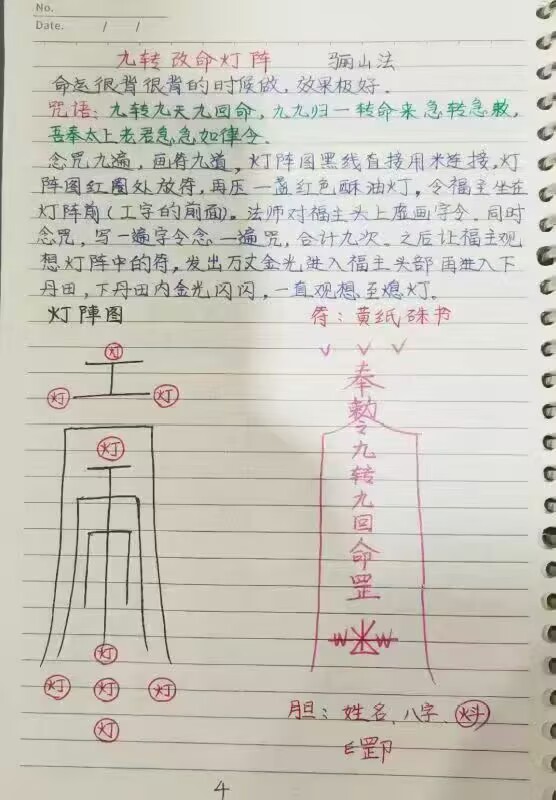 No.
Date. / /
九转改命灯阵 骊山法
命运很背很背的时候做，效果极好。
咒语：九转九天九回命，九九归一转命来急转急救，
吾奉太上老君急急如律令。
念咒九遍，画符九道，灯阵图黑线直接用米连接，灯
阵图红圈处放符，再压一盏红色酥油灯，令福主坐在
灯阵前（工字的前面）。法师对福主头上虚画字令，同时
念咒，写一遍字令念一遍咒，合计九次。之后让福主观
想灯阵中的符，发出万丈金光进入福主头部再进入下
丹田，下丹田内金光闪闪，一直观想至熄灯。
灯陣图 符：黄纸硃书
灯
灯 灯
灯
灯
灯 灯 灯
灯
奉
勅
令
九
转
九
回
命
罡
胆：姓名、八字、
4